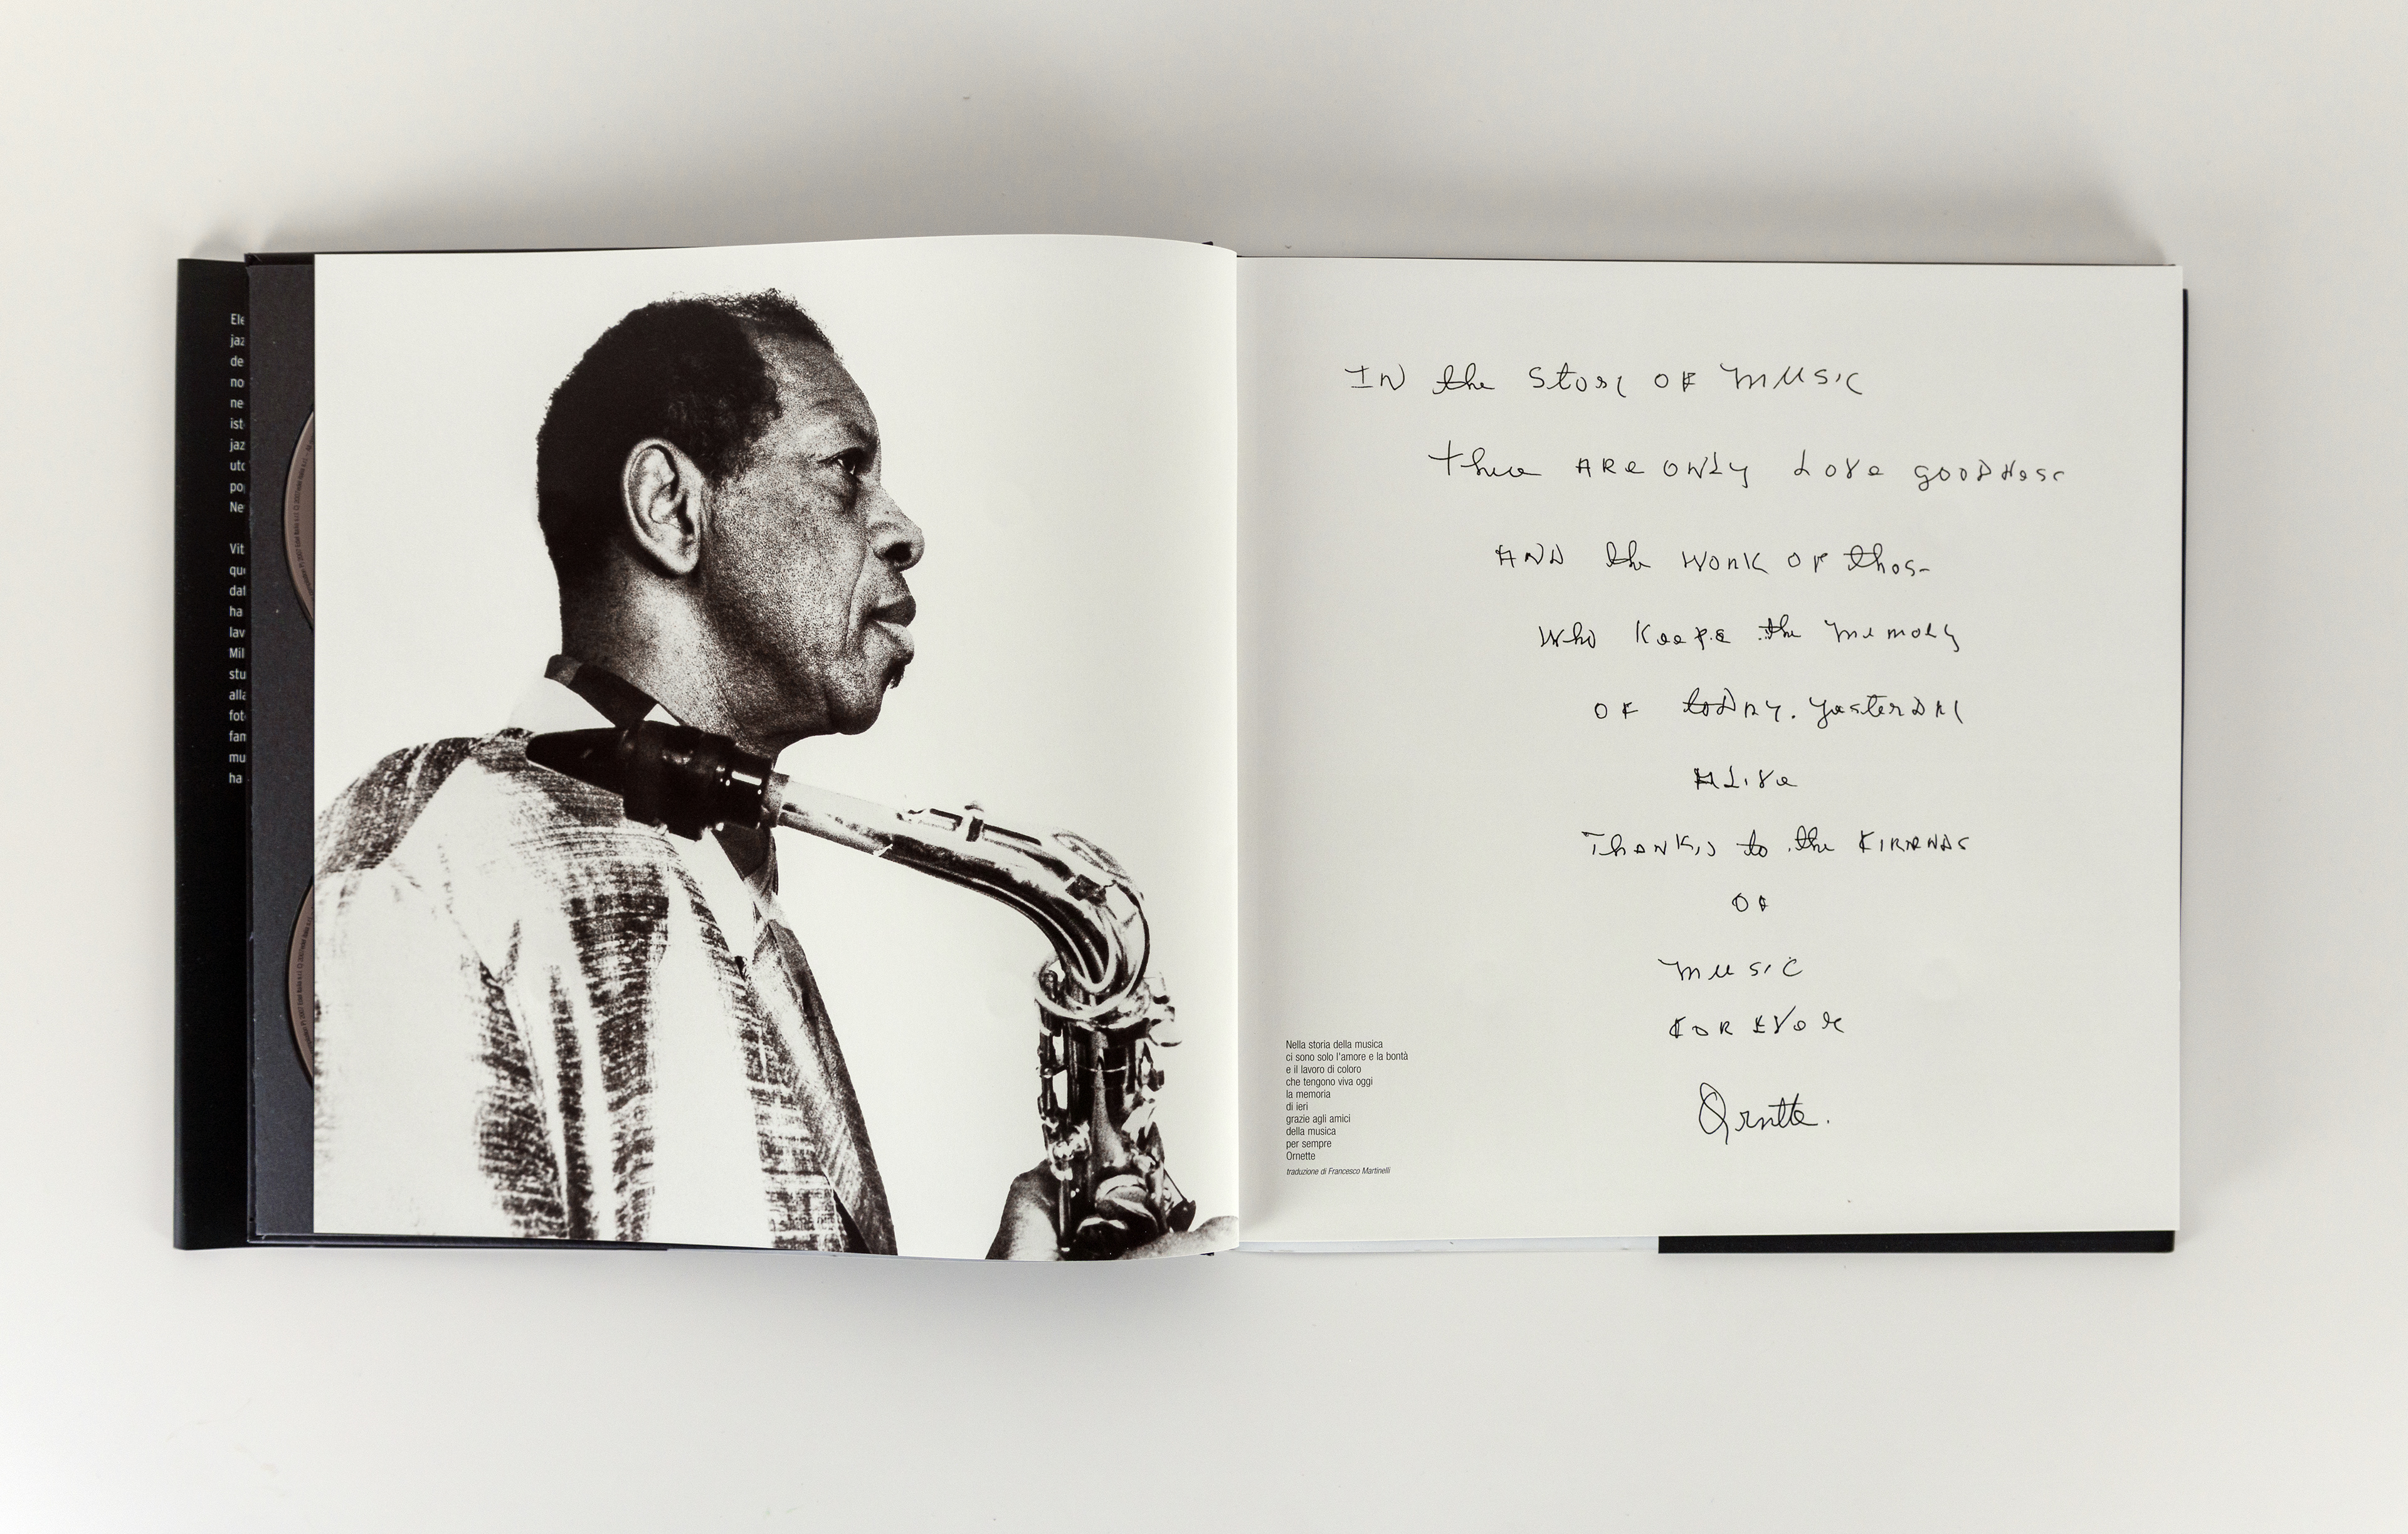 Ele
jaz
de
no
ne
ist
jaz
uto
po
Ne
Vit
que
dal
ha
lav
Mil
stu
alla
fot
fam
mu
ha
IN the Story OF Music
there ARe ONLy Love gooDNess
AND the Work OF those
Who Keeps the Memory
OF toDAy. yesterDAy
ALive
Thanks to the FIRNDS
OF
Music
FOR EVer
Ornette.
Nella storia della musica
ci sono solo l'amore e la bontà
e il lavoro di coloro
che tengono viva oggi
la memoria
di ieri
grazie agli amici
della musica
per sempre
Ornette
traduzione di Francesco Martinelli